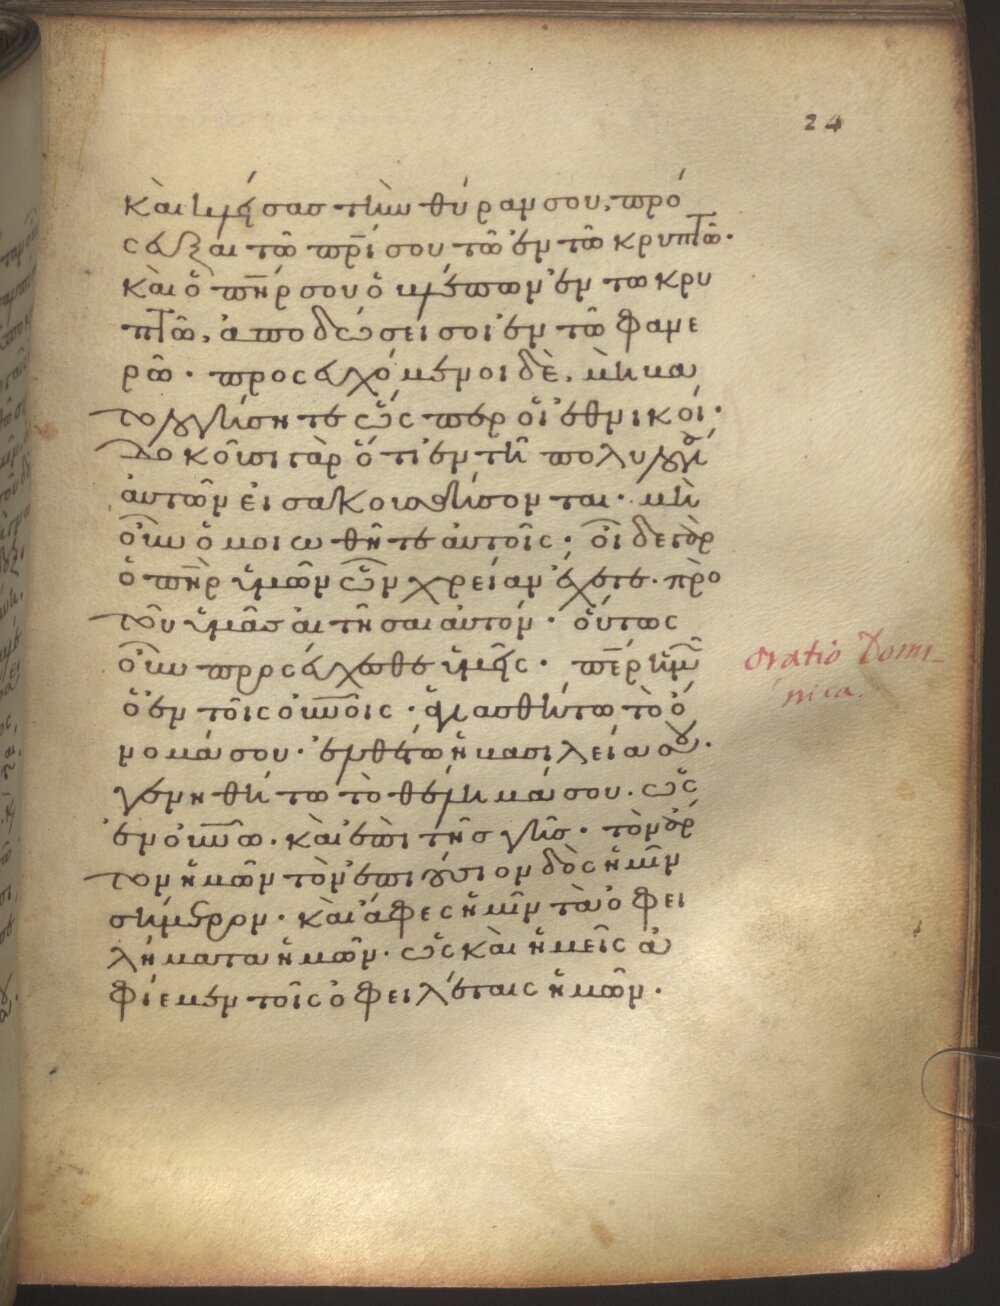 24
καὶ κλείσας τὴν θύραν σου, πρό
σευξαι τῶ πρι σου τῶ ἐν τῶ κρυπτῶ·
καὶ ὁ πηρ σου ὁ βλέπων ἐν τω κρυ
πτῶ, ἀποδώσει σοι ἐν τῶ φανε
ρῶ · προσευχόμενοι δὲ, μὴ βα
τολογήσητε ὥς περ οἱ ἐθνικοί·
δοκοῦσι γὰρ ὅτι ἐν τῆ πολυλογία
αὐτῶν εἰσακουσθήσονται · μὴ
οὖν ὁμοιωθῆτε αὐτοῖς · οἶδε γὰρ
ὁ πηρ ὑμῶν ὧν χρείαν ἔχετε · πρὸ
τοῦ ὑμᾶς αἰτῆσαι αὐτόν · οὕτως
οὖν προσεύχεσθε ὑμεῖς · περ ἡμῶν
ὁ ἐν τοῖς οὐνοῖς · ἁγιασθήτω τὸ ὄ
νομά σου · ἐλθέτω ἡ βασιλεία σου ·
γενηθήτω τὸ θέλημά σου · ὡς
ἐν οὐνω · καὶ ἐπὶ τῆς γῆς · τὸν ἄρ
τον ἡμῶν τὸν ἐπιούσιον δὸς ἡμῖν
σήμερον · καὶ ἄφες ἡμῖν τὰ ὀφει
λήματα ἡμῶν · ὡς καὶ ἡμεῖς ἀ
φίεμεν τοῖς ὀφειλέταις ἡμῶν ·
Oratio Domi-
nica.